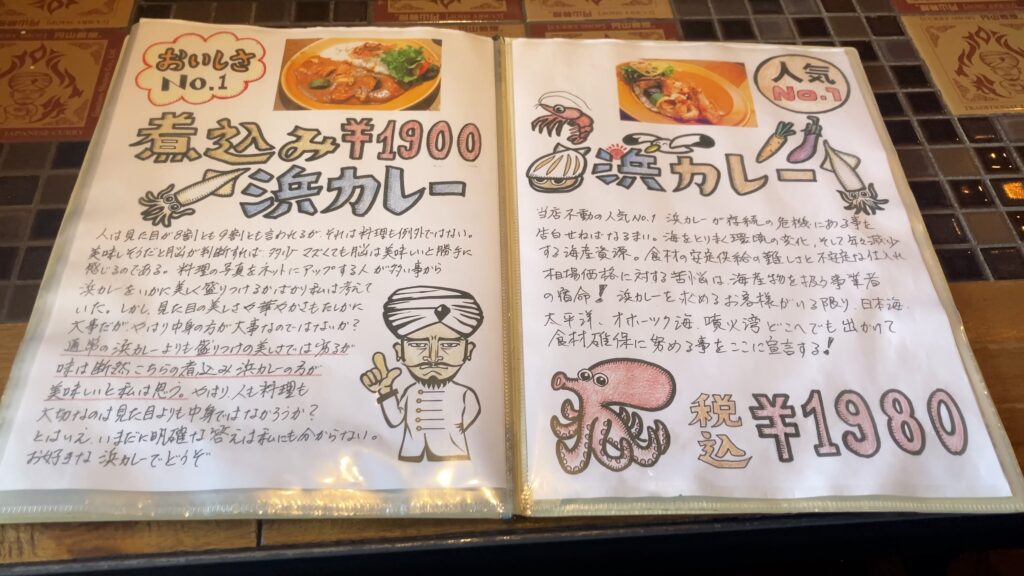 おいしさ
No.1
煮込み¥1900
浜カレー
人は見た目が8割とも9割とも言われるが それは料理も例外ではない。
美味しそうだと脳が判断すれば 多少マズくても脳は美味しいと勝手に
感じるのである。料理の写真をネットにアップする人が多い事から
浜カレーをいかに美しく盛りつけるかばかり私は考えて
いた。しかし、見た目の美しさや華やかさもたしかに
大事だが やはり中身の方が大事なのではないか?
通常の浜カレーよりも盛りつけの美しさでは劣るが
味は断然こちらの煮込み浜カレーの方が
美味しいと私は思う。やはり人も料理も
大切なのは見た目よりも中身ではなかろうか?
とはいえ、いまだに明確な答えは私にも分からない。
お好きな浜カレーでどうぞ
人気
No.1
浜カレー
当店不動の人気No.1 浜カレーが存続の危機にある事を
告白せねばなるまい。海をとりまく環境の変化、そして年々減少
する海産資源。食材の安定供給の難しさと不安定な仕入れ
相場価格に対する苦悩は、海産物を扱う事業者
の宿命! 浜カレーを求めるお客様がいる限り、日本海、
太平洋、オホーツク海、噴火湾 どこへでも出かけて
食材確保に努める事をここに宣言する!
税込 ¥1980
JAPANESE CURRY